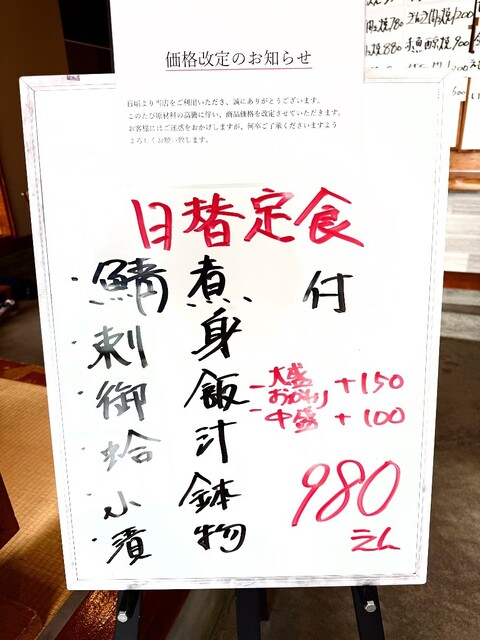 価格改定のお知らせ
日頃より当店をご利用いただき、誠にありがとうございます。
このたび原材料の高騰に伴い、商品価格を改定させていただきます。
お客様にはご迷惑をおかけしますが、何卒ご了承くださいますよう
よろしくお願い致します。
日替定食
・鯖煮付
・刺身
・御飯
-大盛おかわり +150
-中盛 +100
・蛤汁
・小鉢
・漬物
980
えん